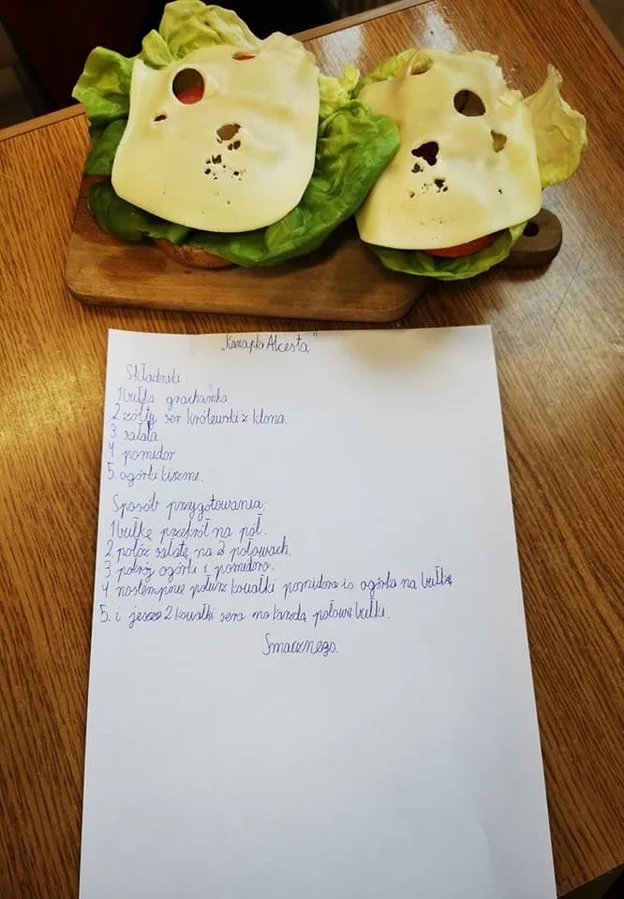 „Kanapka Alcesta"
Składniki
1 bułka grachamka
2 żółty ser królewski z
3 sałata
4 pomidor
5 ogórki kiszne.
Sposób przygotowania:
1 bułkę przekrój na pół.
2 połóż sałatę na 2 połowach.
3 pokrój ogórki i pomidora.
4 nastempnie połusz kawałki pomidora io ogórka na bułkę
5. i jeszcze 2 kawałki sera na każdą połowę bułki.
Smacznego.